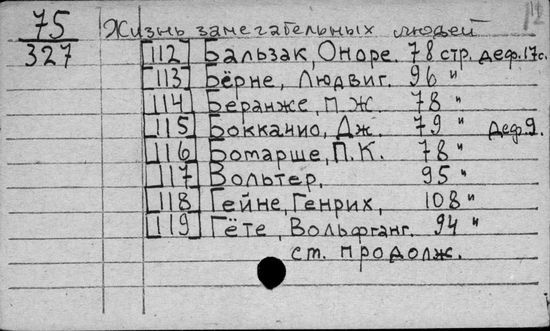 75 Жизнь замечательных людей 12
327 112 Бальзак, Оноре. 78 стр. деф. 17с.
113 Бёрне, Людвиг. 96 "
114 Беранже, П. Ж. 78 "
115 Боккачио, Дж. 79 " деф 9.
116 Бомарше, П. К. 78 "
117 Вольтер, 95 "
118 Гейне, Генрих, 108 "
119 Гёте, Вольфганг. 94 "
ст. продолж.